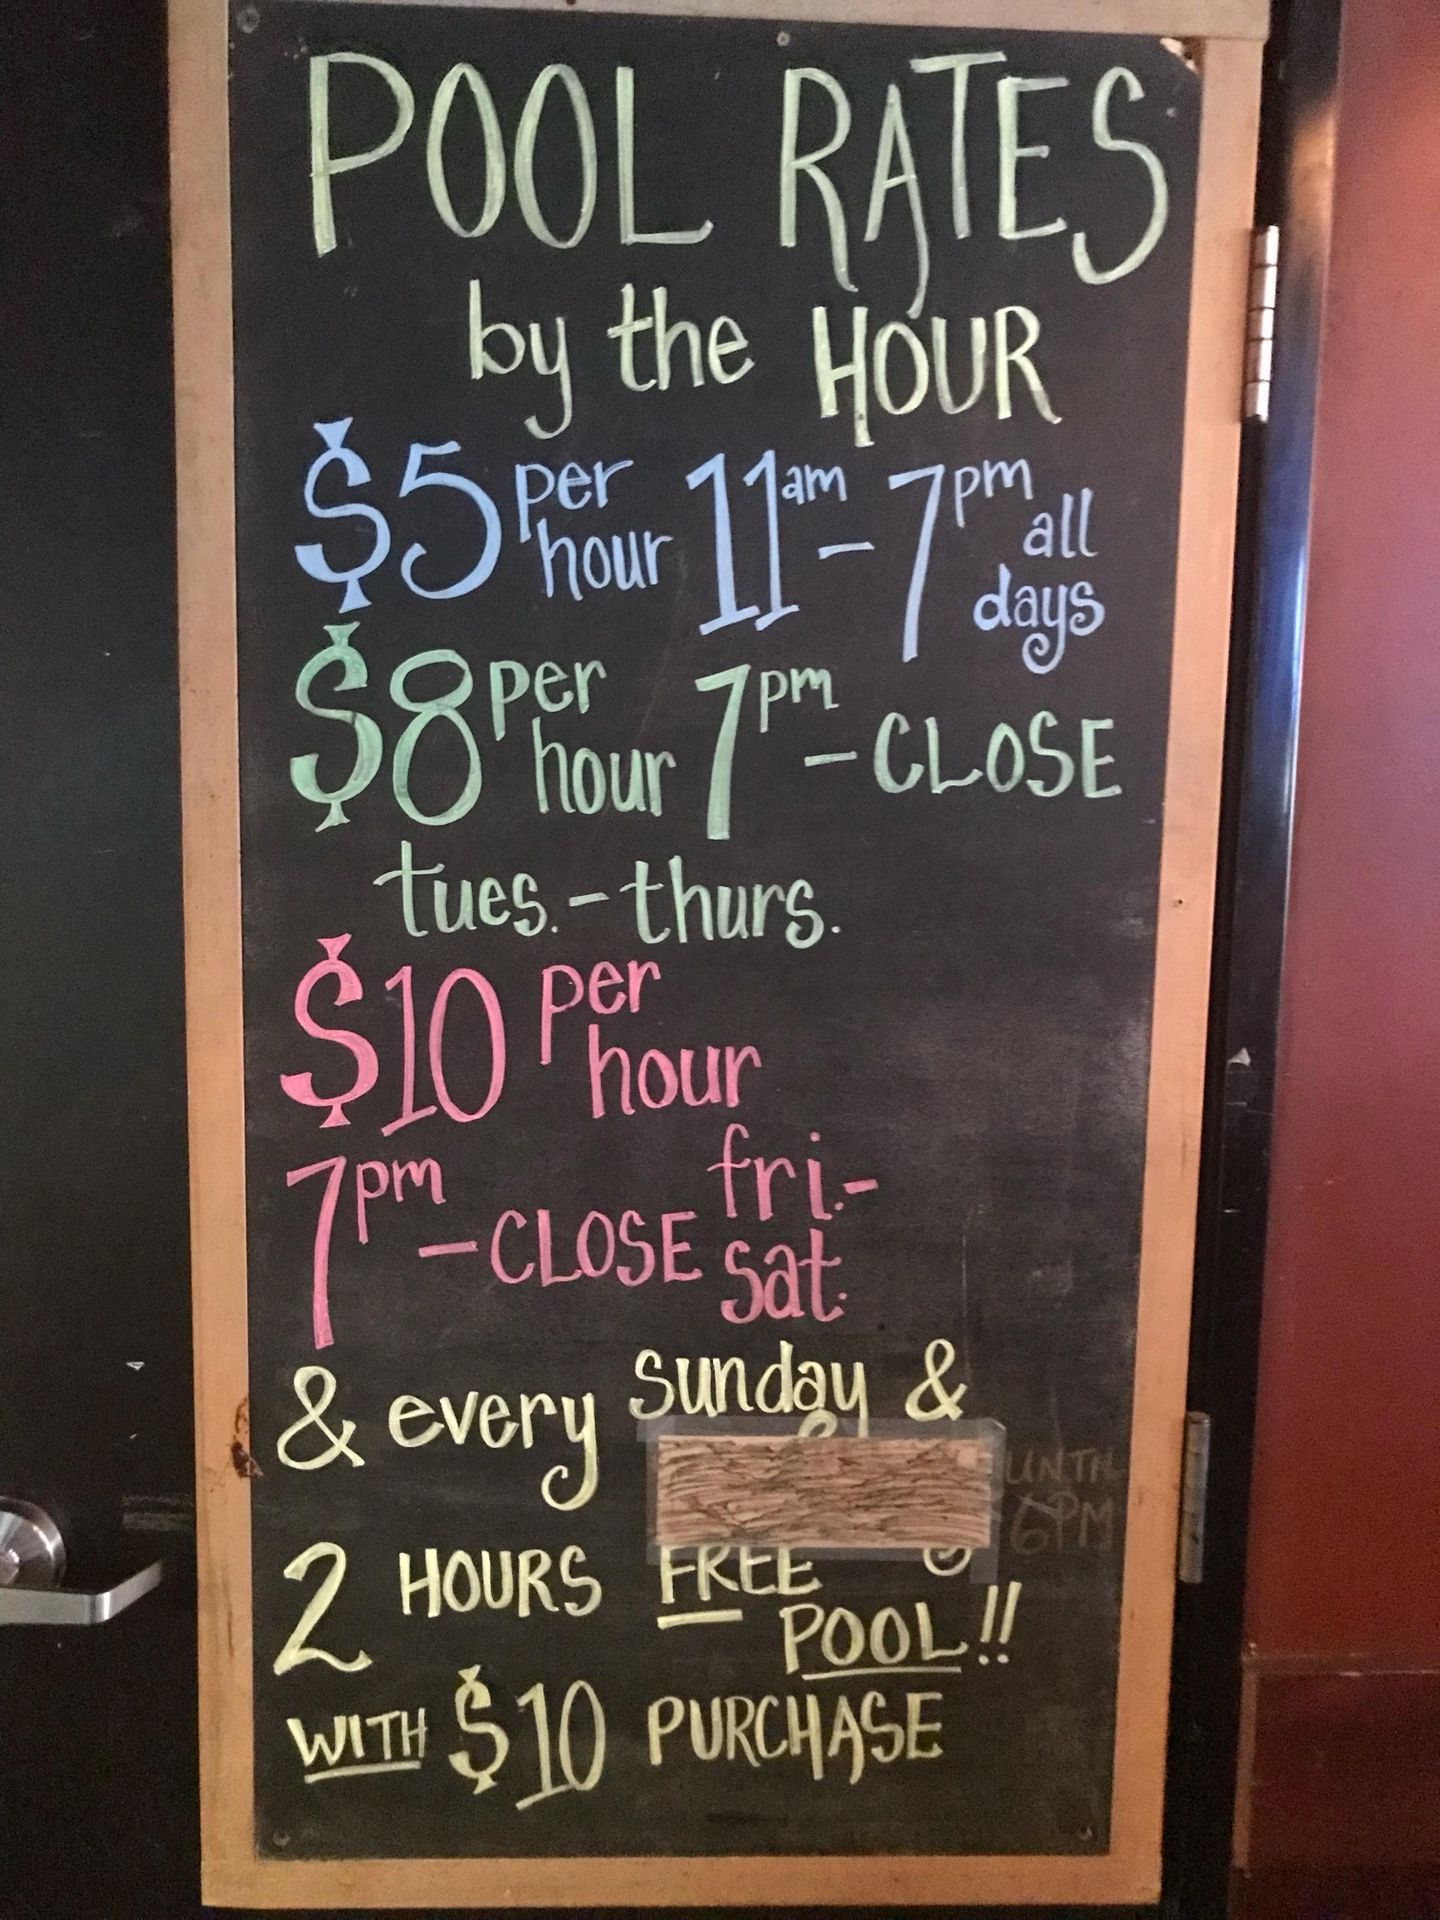 POOL RATES
by the HOUR
$5 per hour 11am - 7pm all days
$8 per hour 7pm - CLOSE
tues. - thurs.
$10 per hour
7pm - CLOSE fri. - sat.
& every sunday &
UNTIL 6PM
2 HOURS FREE POOL!!
WITH $10 PURCHASE